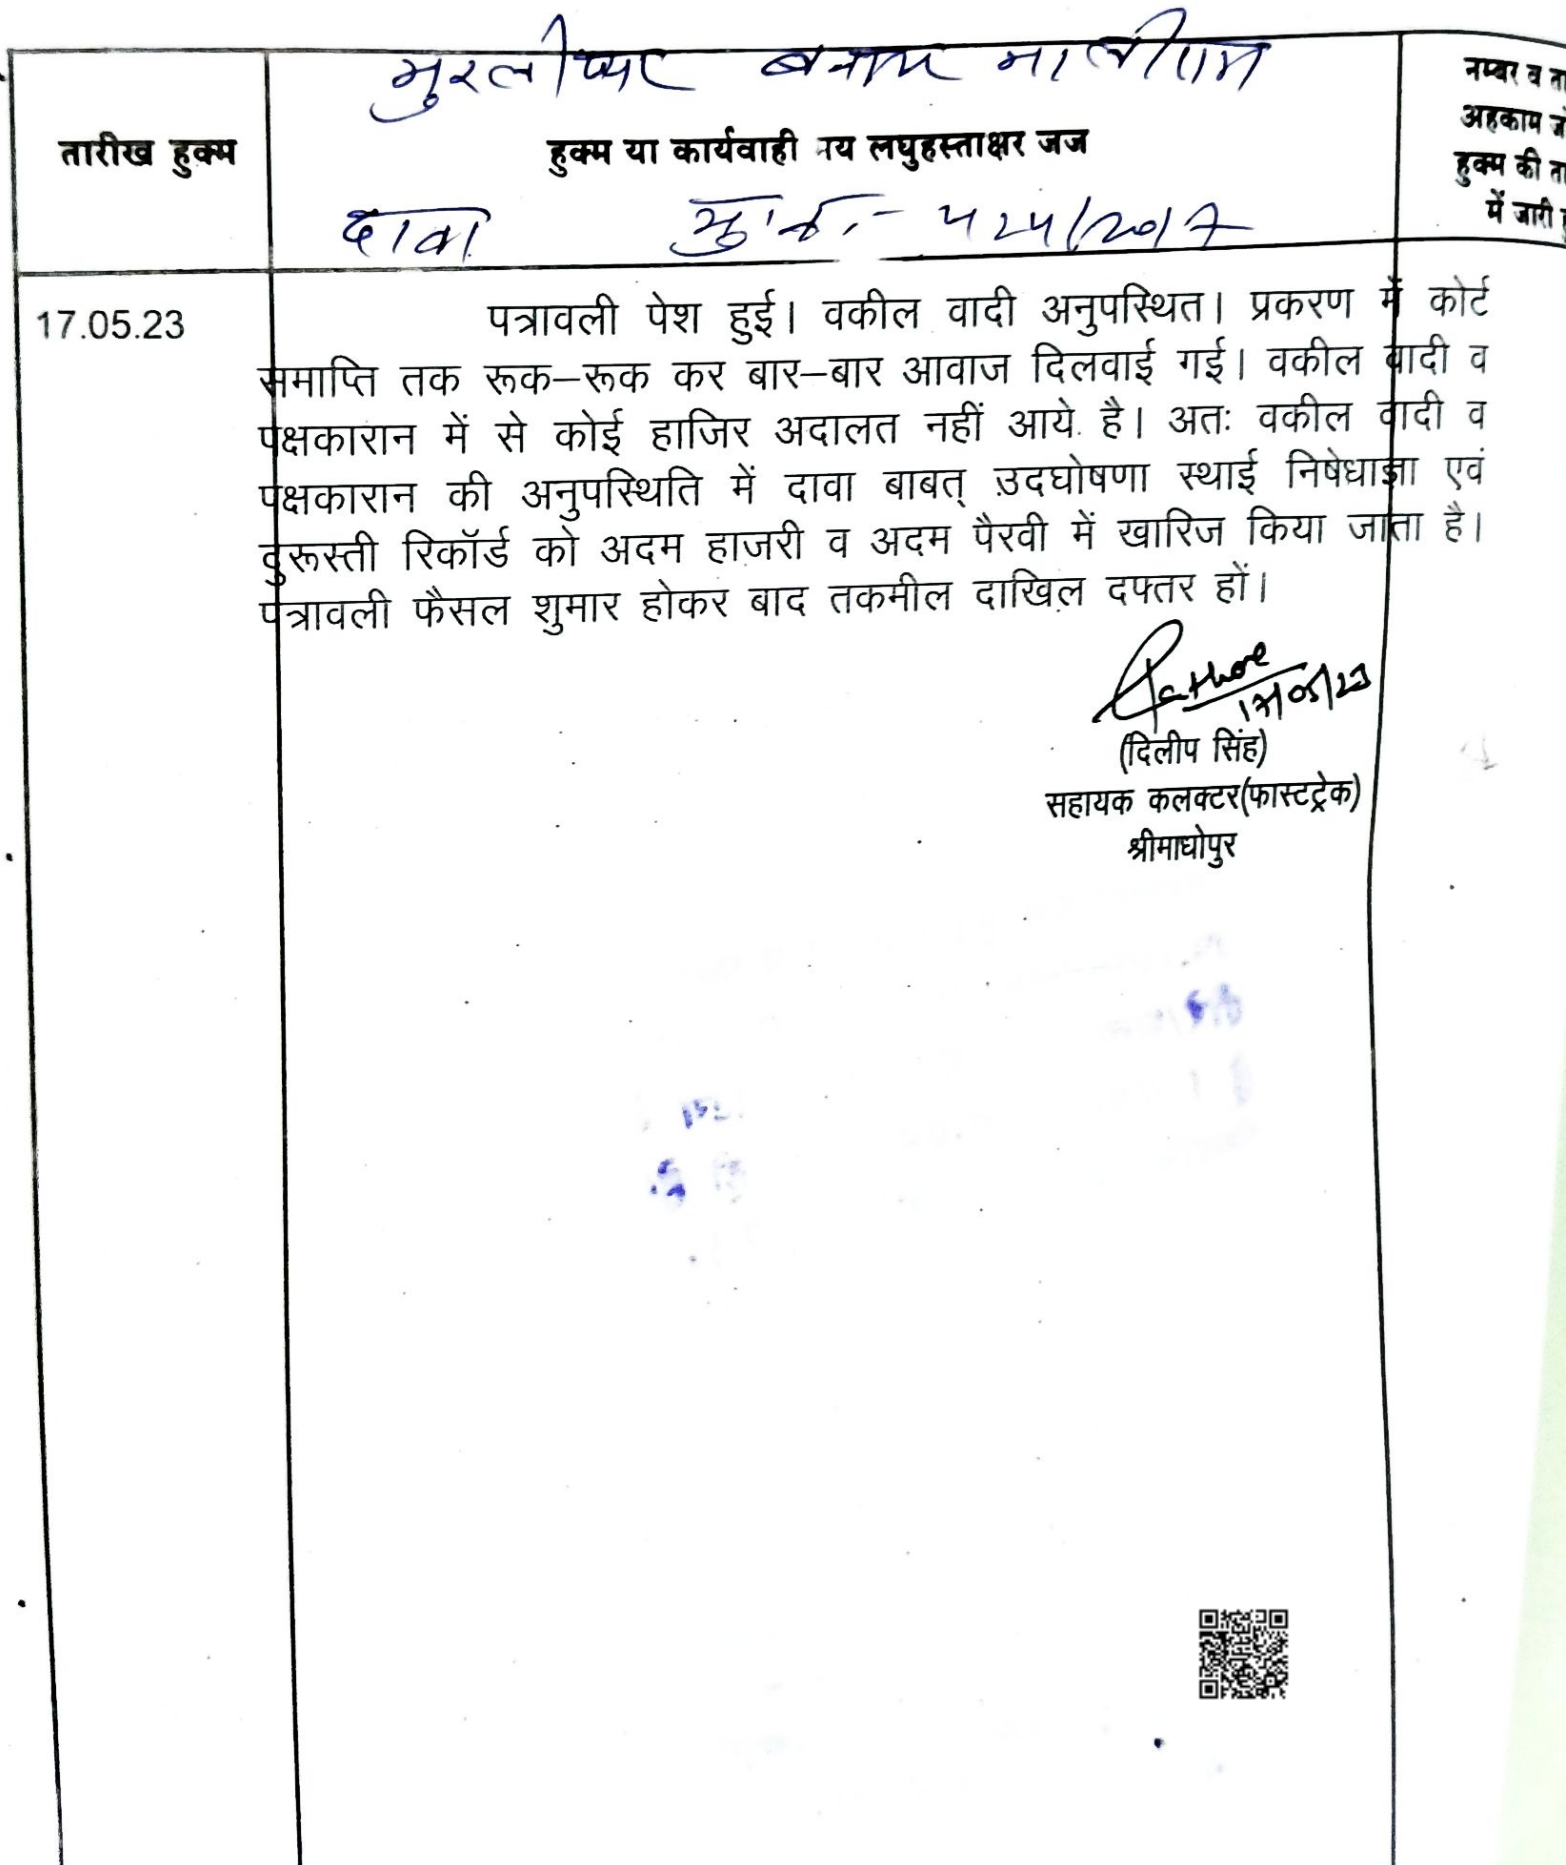 मुरलीधर बनाम मालीराम
तारीख हुक्म
हुक्म या कार्यवाही मय लघुहस्ताक्षर जज
नम्बर व ता
अहकाम जो
हुक्म की ता
में जारी हु
दावा मु.नं.:- 424/2017
17.05.23
पत्रावली पेश हुई। वकील वादी अनुपस्थित। प्रकरण में कोर्ट
समाप्ति तक रूक–रूक कर बार–बार आवाज दिलवाई गई। वकील वादी व
पक्षकारान में से कोई हाजिर अदालत नहीं आये है। अतः वकील वादी व
पक्षकारान की अनुपस्थिति में दावा बाबत् उदघोषणा स्थाई निषेधाज्ञा एवं
दुरूस्ती रिकॉर्ड को अदम हाजरी व अदम पैरवी में खारिज किया जाता है।
पत्रावली फैसल शुमार होकर बाद तकमील दाखिल दफ्तर हों।
Rathore
17/05/23
(दिलीप सिंह)
सहायक कलक्टर(फास्टट्रेक)
श्रीमाधोपुर